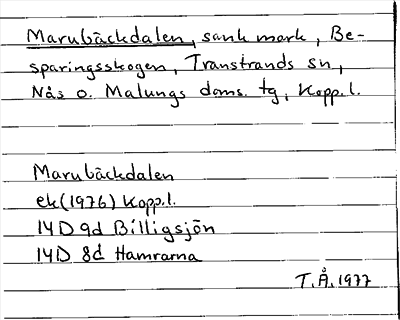 Marubäckdalen, sank mark, Be-
sparingsskogen, Transtrands sn,
Nås o. Malungs doms. tg, Kopp.l.
Marubäckdalen
ek(1976) Kopp.l.
14D 9d Billigsjön
14D 8d Hamrarna
T.Å. 1977